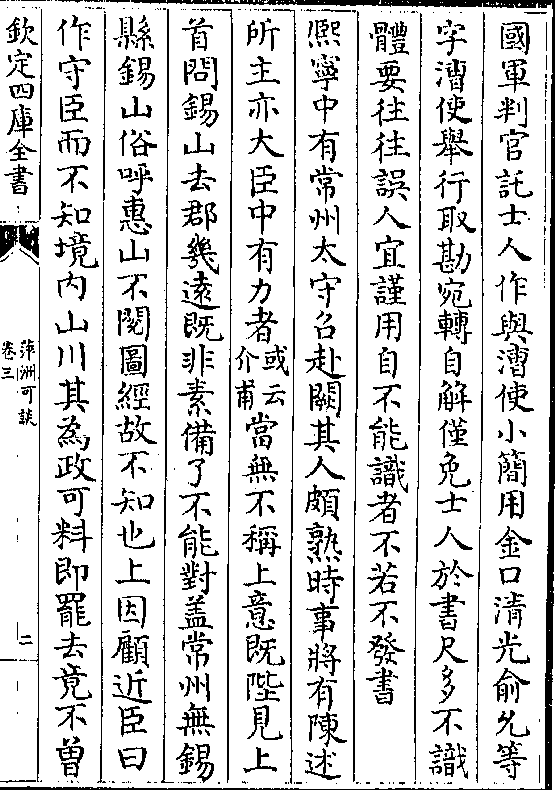 國軍判官託士人作與漕使小簡用金口清光俞允等
字漕使舉行取勘宛轉自解僅免士人於書尺多不識
體要往往誤人宜謹用自不能識者不若不發書
熈寧中有常州太守召赴闕其人頗熟時事將有陳述
所主亦大臣中有力者或云介甫當無不稱上意既陛見上
首問錫山去郡幾遠既非素備了不能對盖常州無錫
縣錫山俗呼惠山不閱圖經故不知也上因顧近臣曰
作守臣而不知境内山川其為政可料即罷去竟不曽
欽定四庫全書
萍洲可談
卷三
二